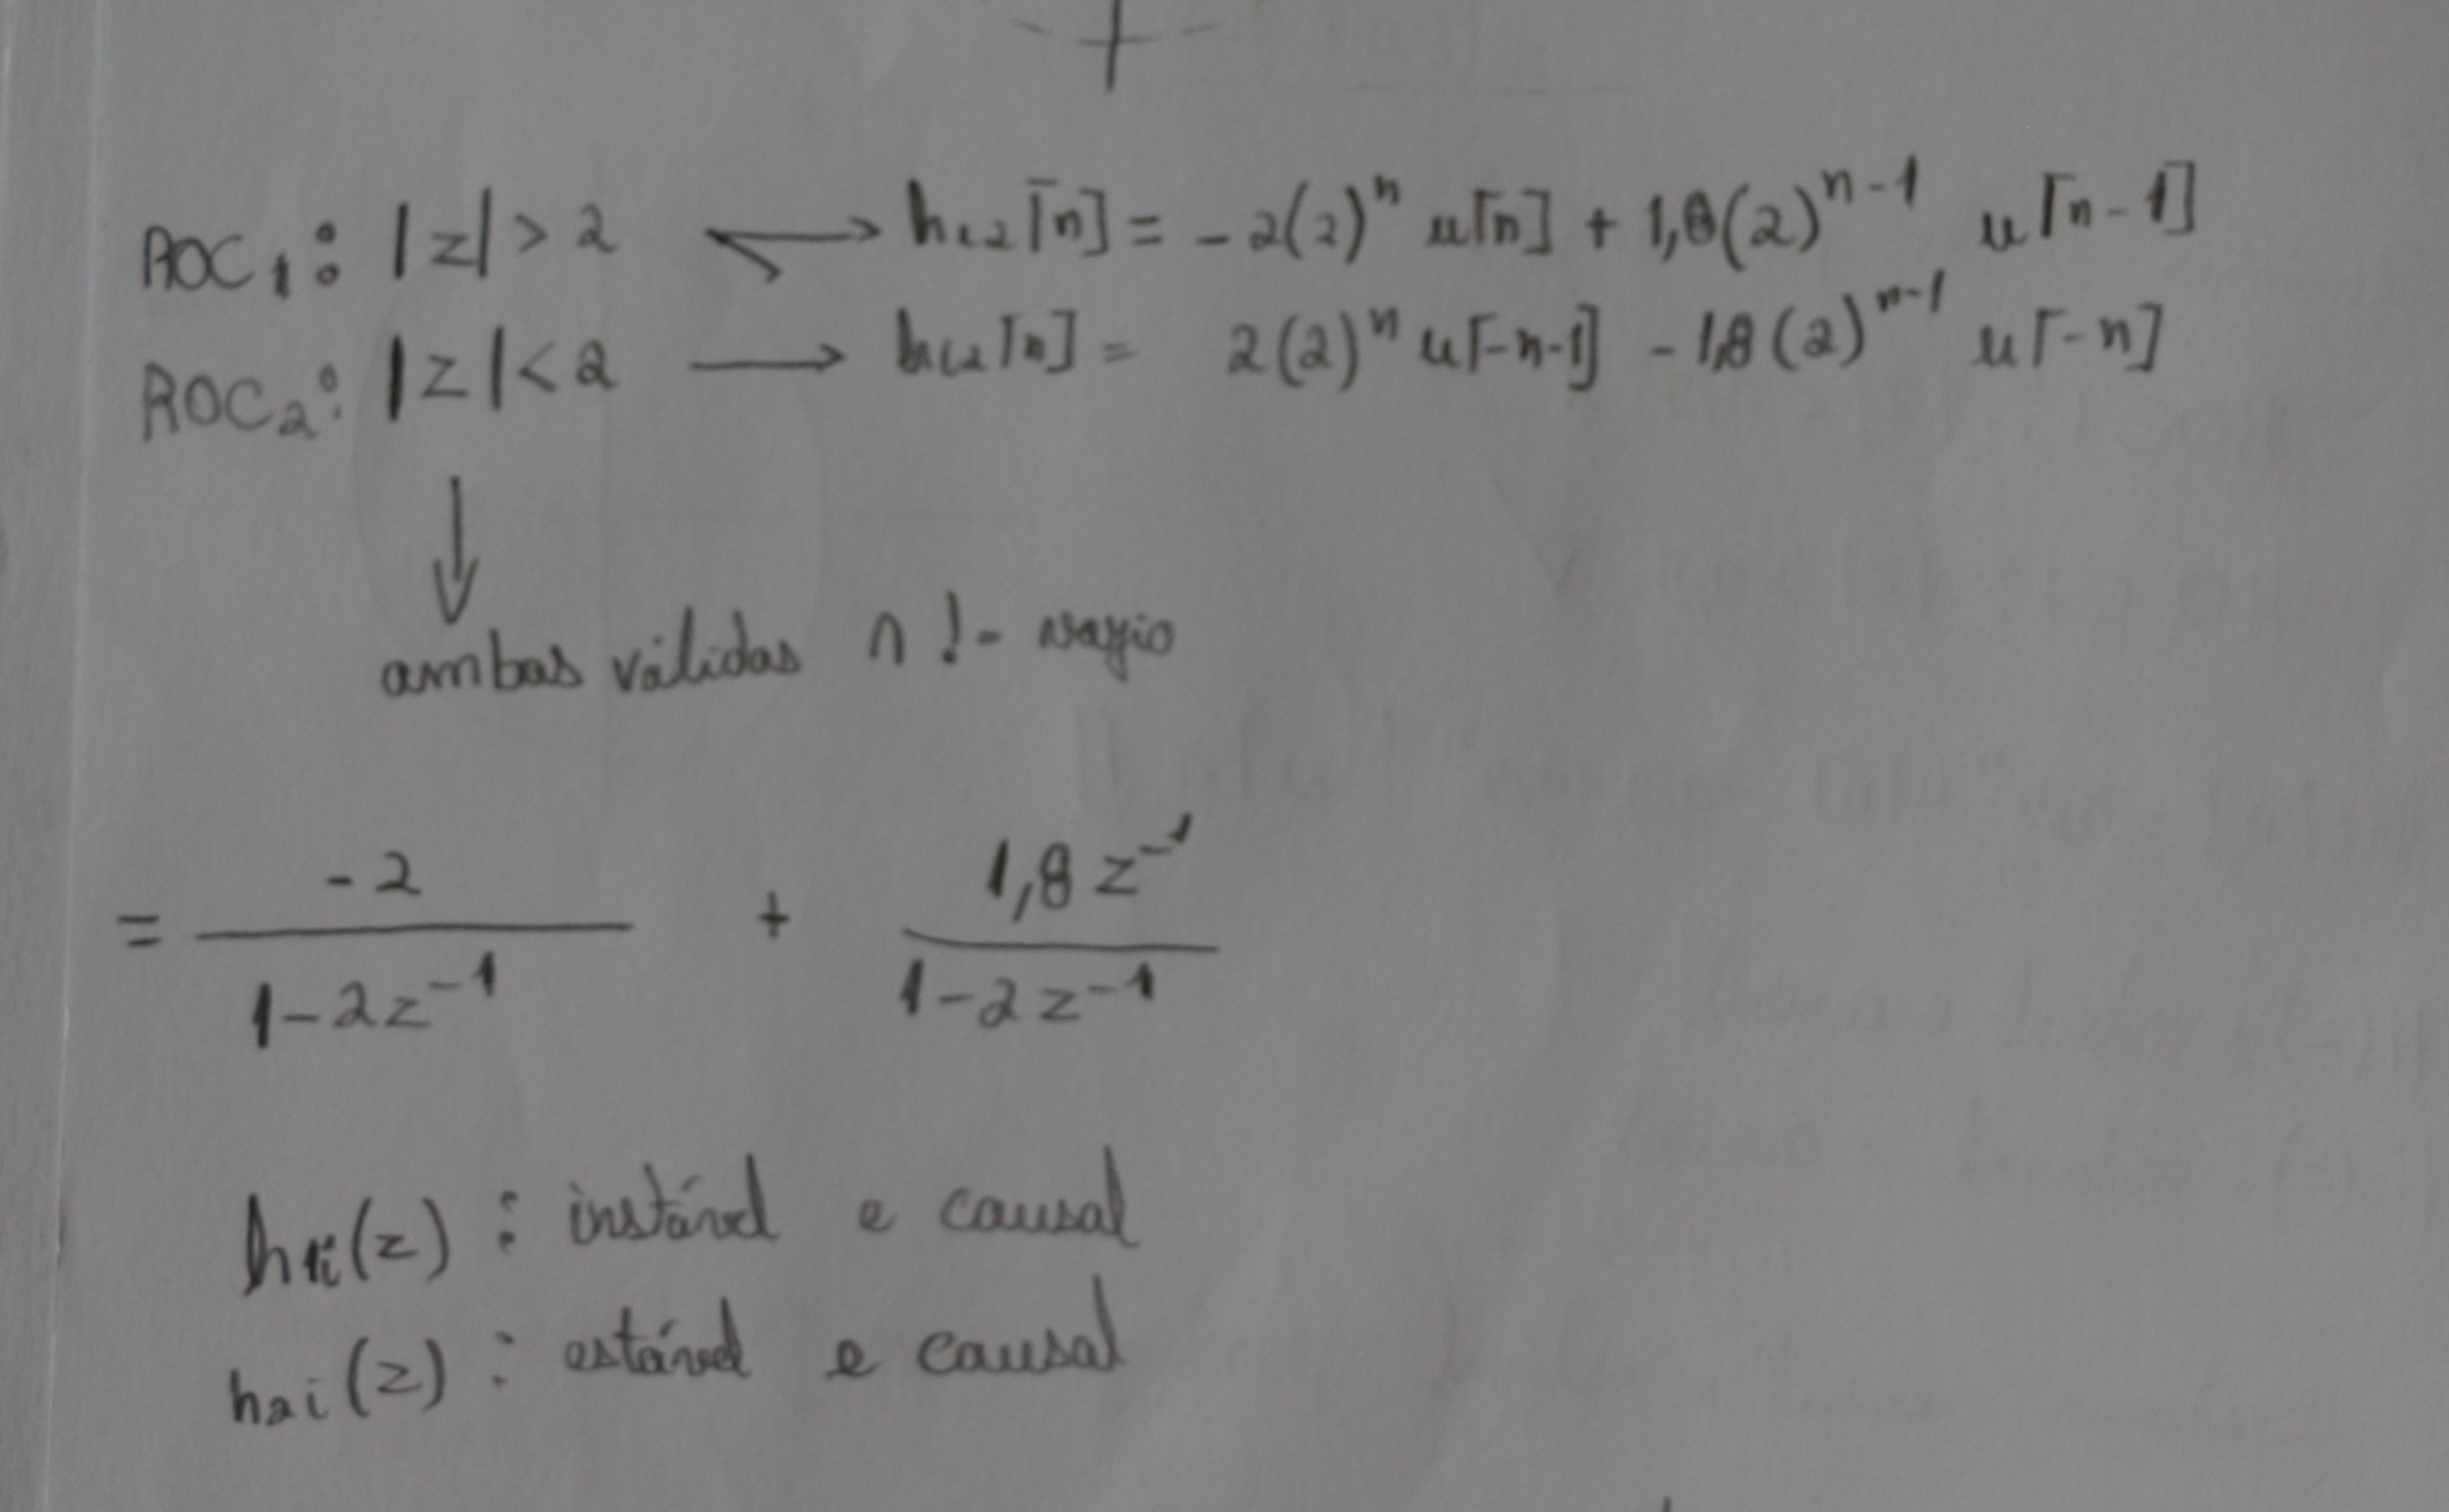 ROC₁: |z| > 2 → hᵢ₂[n] = -2(2)ⁿ u[n] + 1,8(2)ⁿ⁻¹ u[n-1]
ROC₂: |z| < 2 → hᵢ₂[n] = 2(2)ⁿ u[-n-1] - 1,8(2)ⁿ⁻¹ u[-n]
↓
ambas válidas ∩ != vazio
= -2 / (1-2z⁻¹) + 1,8z⁻¹ / (1-2z⁻¹)
h₁ᵢ(z): instável e causal
h₂ᵢ(z): estável e causal